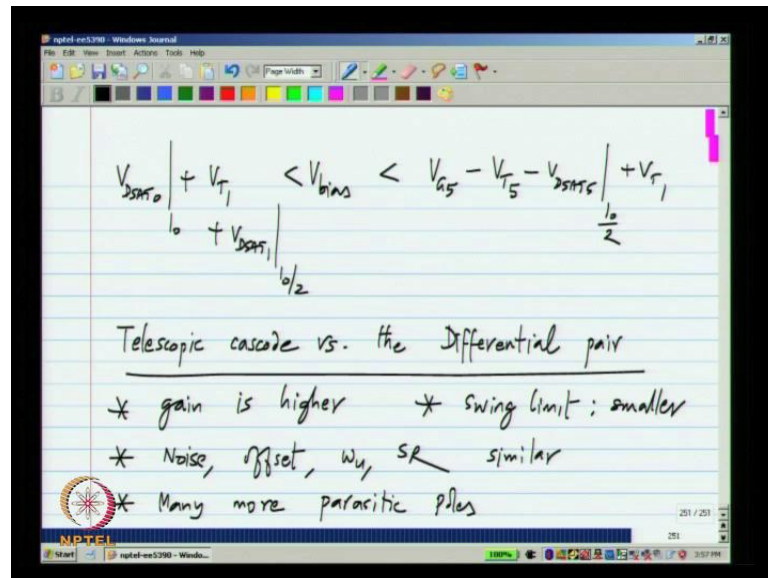 nptel-ee5390 - Windows Journal
File Edit View Insert Actions Tools Help
Page Width
B I
V_DSAT0 |_I0 + V_T1 + V_DSAT1 |_I0/2 < V_bias < V_G5 - V_T5 - V_DSAT5 |_I0/2 + V_T1
Telescopic cascode vs. the Differential pair
* gain is higher * Swing limit : smaller
* Noise, offset, ωu, SR similar
* Many more parasitic poles
NPTEL
251 / 251
251
Start nptel-ee5390 - Windo... 100% 3:57 PM